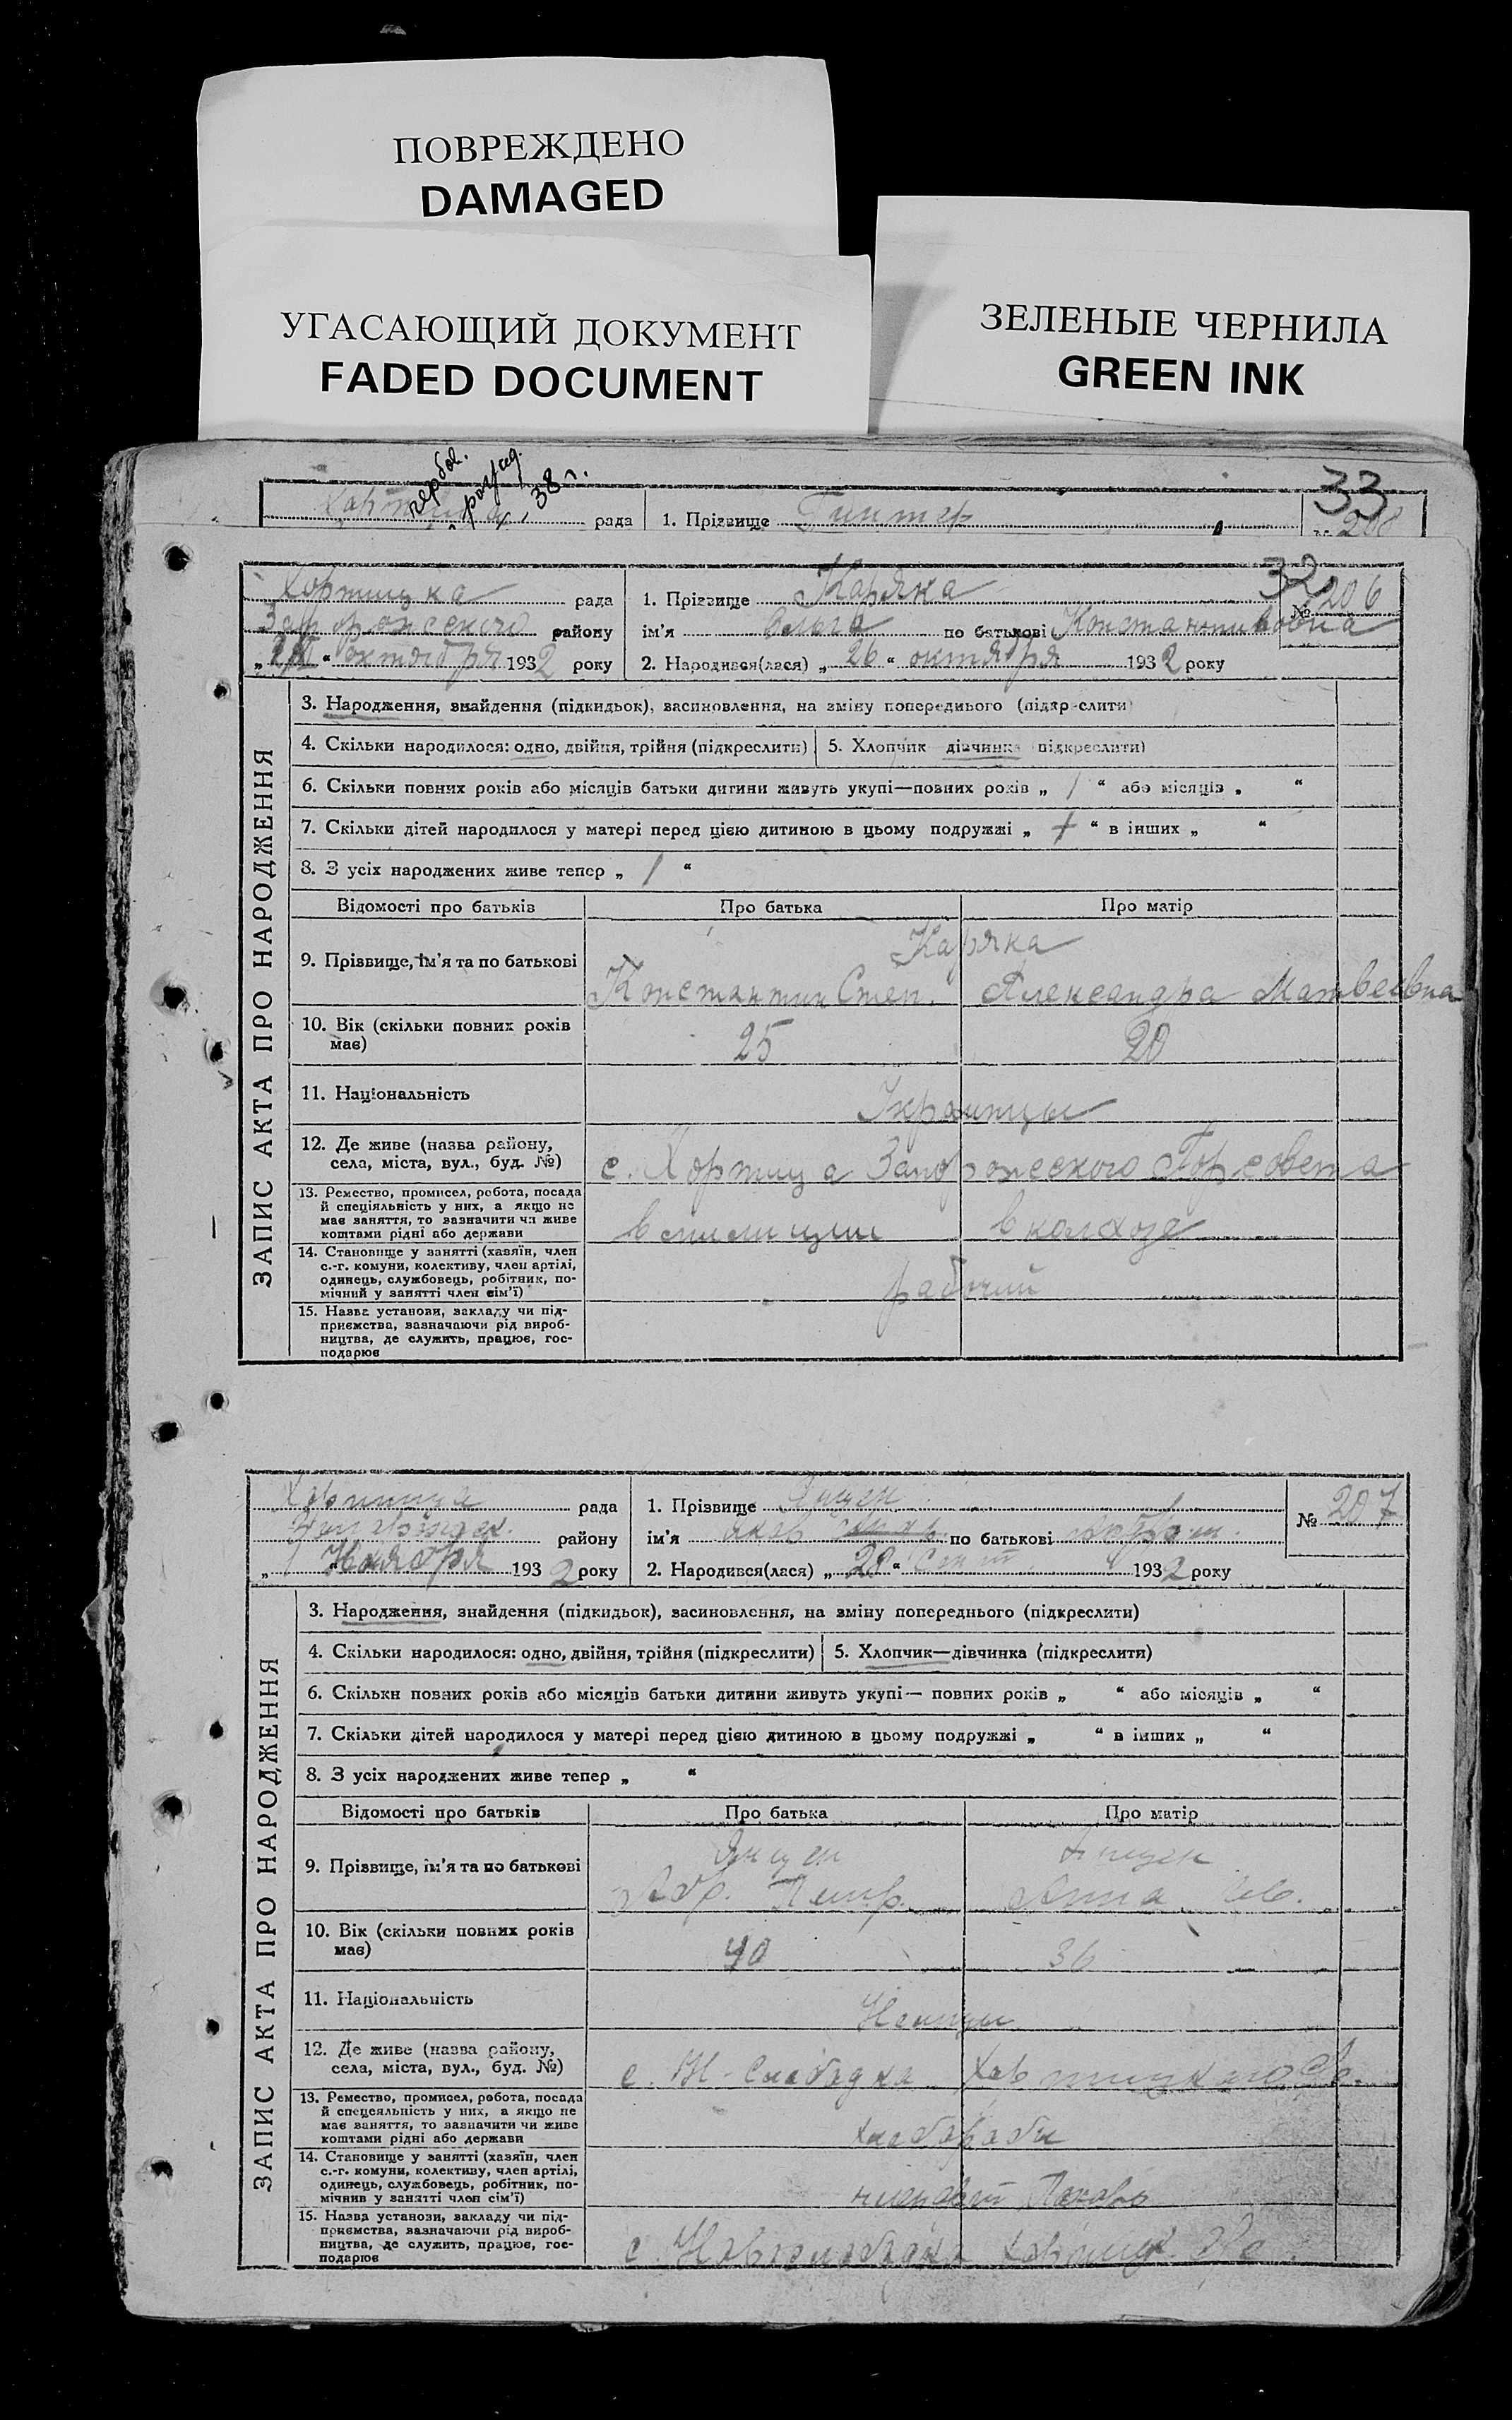 ПОВРЕЖДЕНО
DAMAGED
УГАСАЮЩИЙ ДОКУМЕНТ
FADED DOCUMENT
ЗЕЛЕНЫЕ ЧЕРНИЛА
GREEN INK
38 г.
33
рада 1. Прізвище Гинтер 208
32
рада 1. Прізвище Каряка № 206
Запорожского району ім'я Ольга по батькові Константиновна
октября 1932 року 2. Народився(лася) „ 26 “ октября 1932 року
ЗАПИС АКТА ПРО НАРОДЖЕННЯ
3. Народження, знайдення (підкидьок), засиновлення, на зміну попереднього (підкреслити)
4. Скільки народилося: одно, двійня, трійня (підкреслити) 5. Хлопчик—дівчинка (підкреслити)
6. Скільки повних років або місяців батьки дитини живуть укупі—повних років „ 1 “ або місяців „ “
7. Скільки дітей народилося у матері перед цією дитиною в цьому подружжі „ “ в інших „ “
8. З усіх народжених живе тепер „ 1 “
Відомості про батьків Про батька Про матір
9. Прізвище, ім'я та по батькові Каряка
Константин Степ. Александра Матвеевна
10. Вік (скільки повних років має) 25 20
11. Національність Украинцы
12. Де живе (назва району, села, міста, вул., буд. №) с. Хортица Запорожского Горсовета
13. Ремество, промисел, робота, посада
й спеціяльність у них, а якщо не
має заняття, то зазначити чи живе
коштами рідні або держави
в милиции в колхозе
14. Становище у занятті (хазяїн, член
с.-г. комуни, колективу, член артілі,
одинець, службовець, робітник, по-
мічний у занятті член сім'ї)
рабочий
15. Назва установи, закладу чи під-
приємства, зазначаючи рід вироб-
ництва, де служить, працює, гос-
подарює
рада 1. Прізвище Янцен № 207
району ім'я Яков по батькові
Ноября 1932 року 2. Народився(лася) „ 28 “ Сент 1932 року
ЗАПИС АКТА ПРО НАРОДЖЕННЯ
3. Народження, знайдення (підкидьок), засиновлення, на зміну попереднього (підкреслити)
4. Скільки народилося: одно, двійня, трійня (підкреслити) 5. Хлопчик—дівчинка (підкреслити)
6. Скільки повних років або місяців батьки дитини живуть укупі— повних років „ “ або місяців „ “
7. Скільки дітей народилося у матері перед цією дитиною в цьому подружжі „ “ в інших „ “
8. З усіх народжених живе тепер „ “
Відомості про батьків Про батька Про матір
9. Прізвище, ім'я та по батькові Янцен Янцен
Абр. Петр. Анна
10. Вік (скільки повних років має) 40 36
11. Національність Немцы
12. Де живе (назва району, села, міста, вул., буд. №) с. Н-Слободка
13. Ремество, промисел, робота, посада
й спецсяльність у них, а якщо не
має заняття, то зазначити чи живе
коштами рідні або держави
хлеборобы
14. Становище у занятті (хазяїн, член
с.-г. комуни, колективу, член артілі,
одинець, службовець, робітник, по-
мічнив у занятті член сім'ї)
15. Назва установи, закладу чи під-
приємства, зазначаючи рід вироб-
ництва, де служить, працює, гос-
подарює